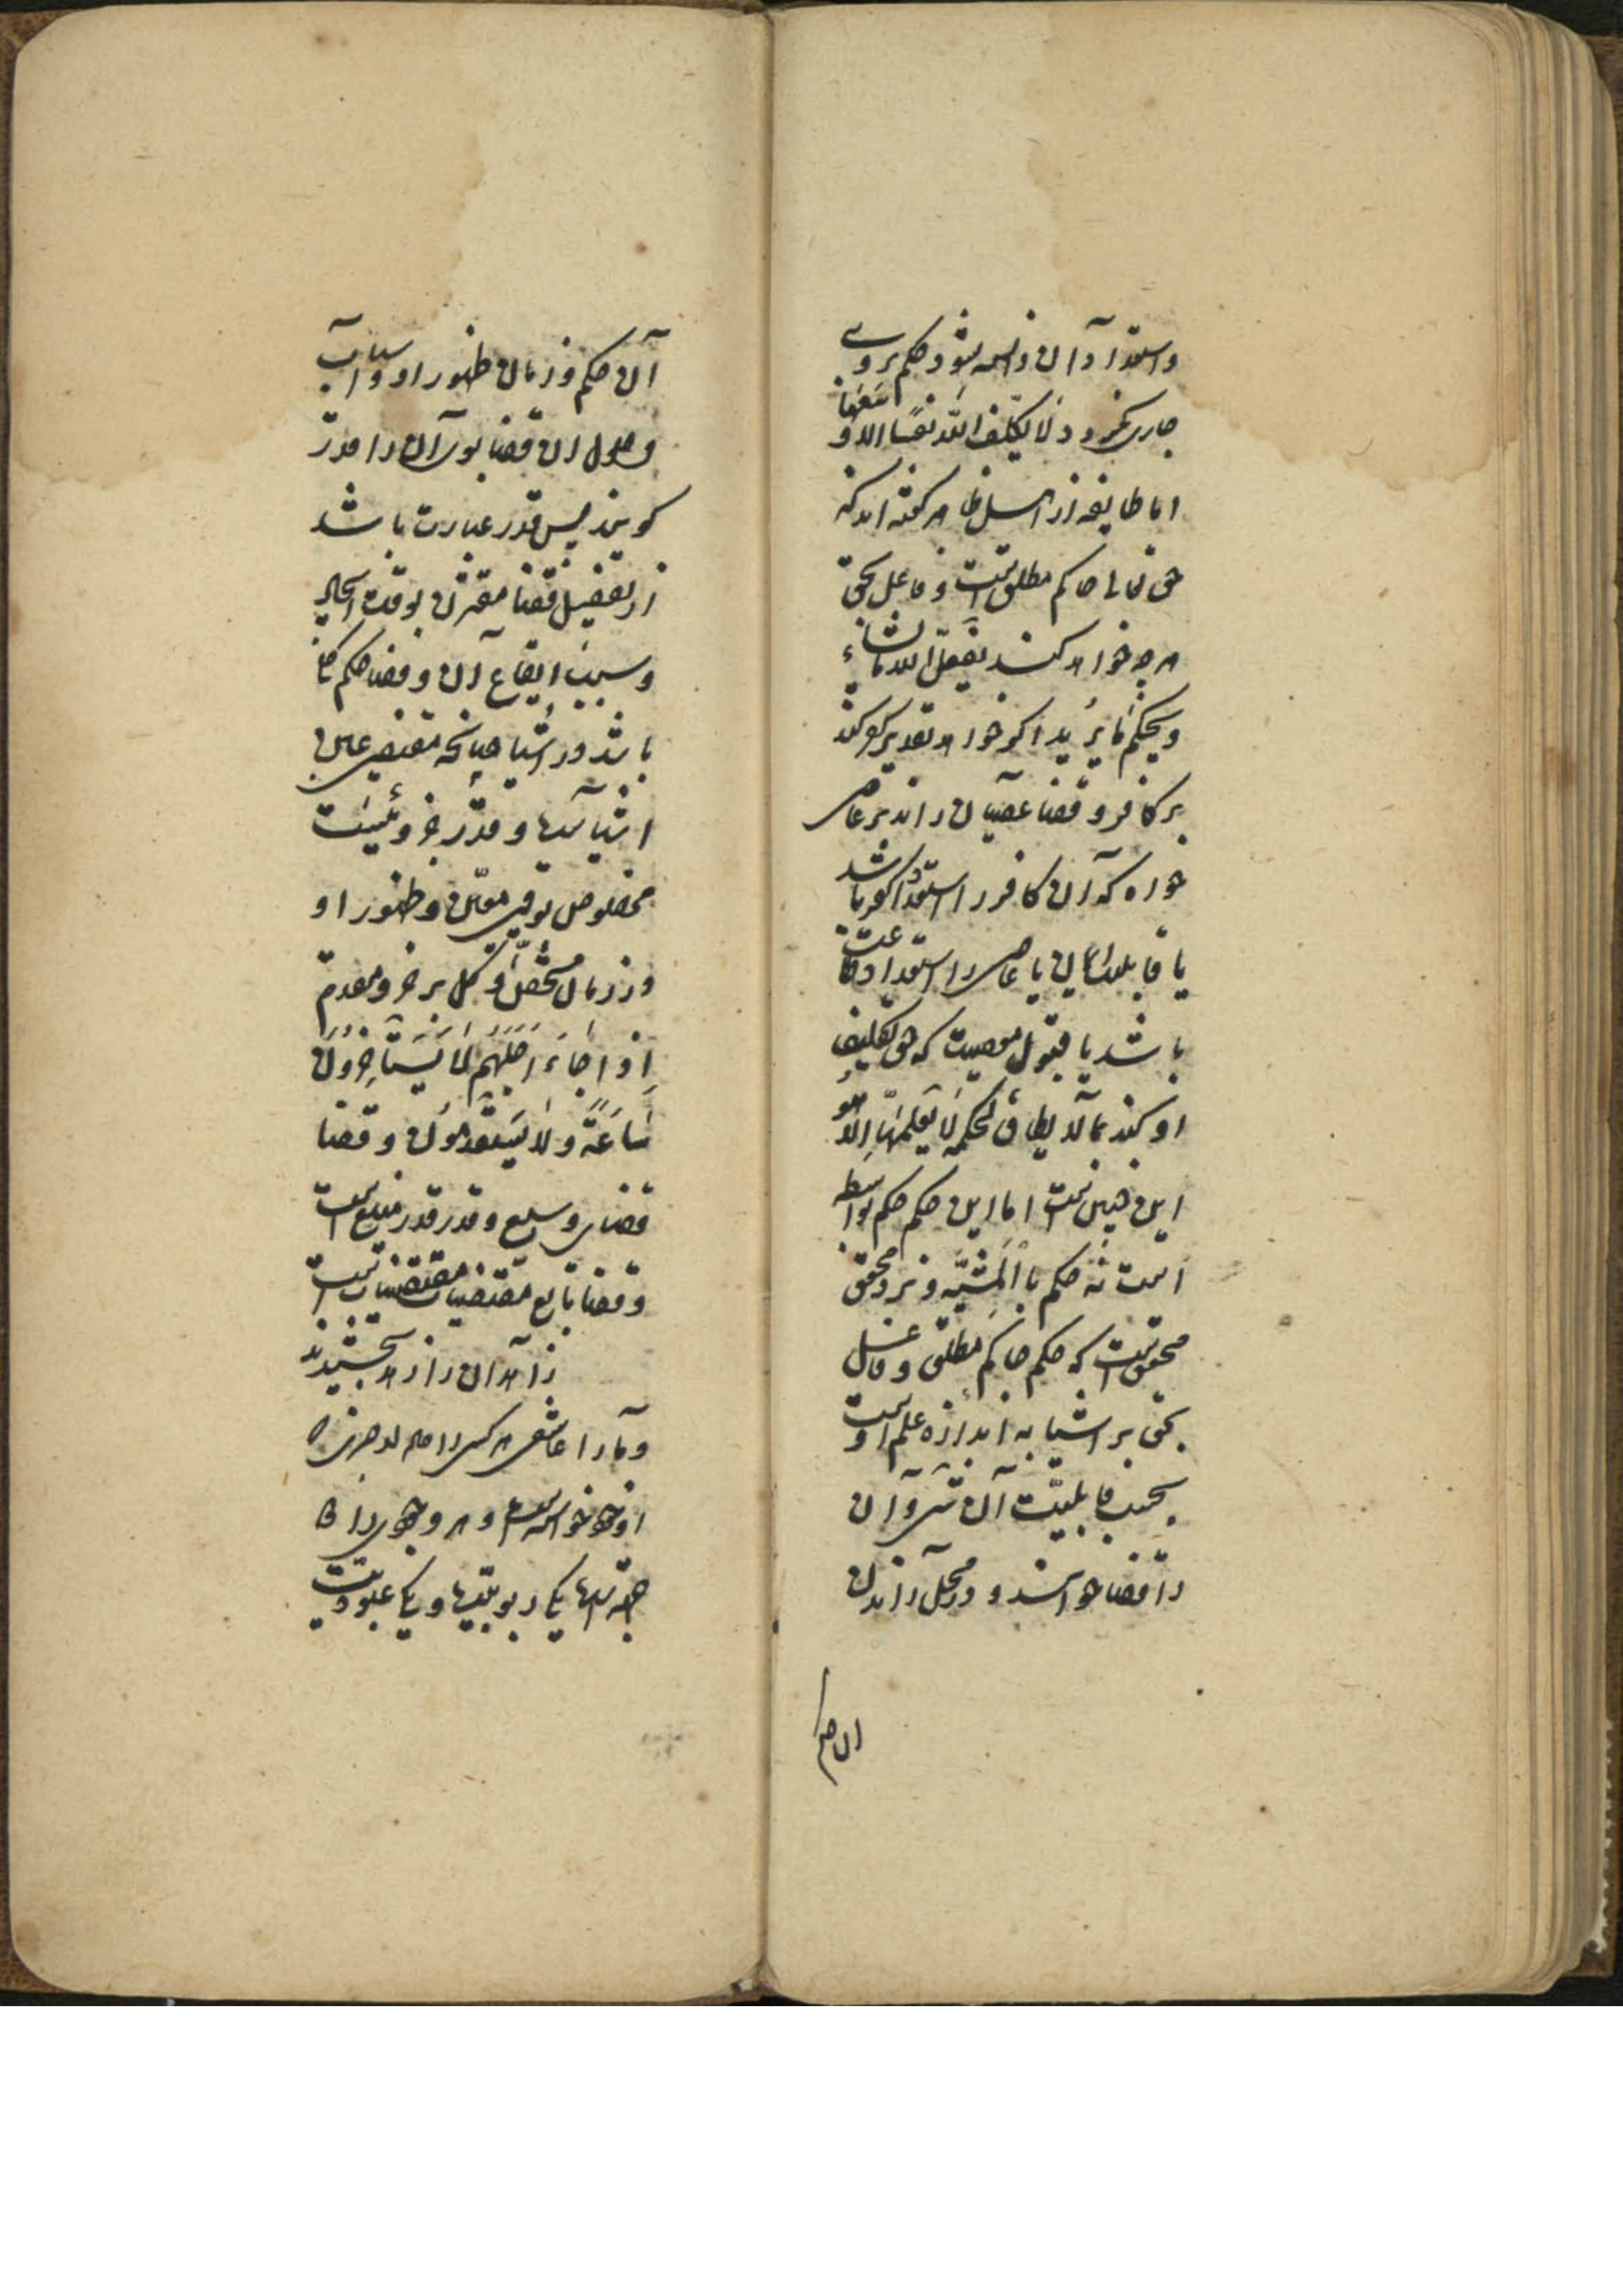 واستعداد آن دانسته نشود حکم بر وی
جاری نکردد لَا یُکَلِّفُ اللّهُ نَفْسًا اِلّا وُسْعَهَا
اما طایفه از اهل ظاهر کفته اند که
حق تعالی حاکم مطلق است و فاعل بحق
هر چه خواهد کند یَفْعَلُ اللّه مَا یَشَاء
وَیَحْکُمُ مَا یُرِید اکر خواهد تقدیر کفر کند
بر کافر و قضا عصیان راند بر عاصی
خواه که آن کافر را استعداد کفر باشد
یا قابلیت ایمان یا عاصی را استعداد طاعت
باشد یا قبول معصیت که حق تکلیف
او کند بما لا یطاق لحکمة لا یَعْلَمُهَا اِلّا هُوَ
این چنین است اما این حکم حکم بواسطه
است نه حکم با المشیّه و نزد محقق
محقق است که حکم حاکم مطلق و فاعل
بحق بر اشیا به اندازه علم اوست
بحسب قابلیّت آن شیٔ و آن
را قضا خوانند و در محل راندن
ان حکم
آن حکم و زمان ظهور او و اسباب
وصول ان قضا بوی آن را قدر
کویند پس قدر عبارت باشد
از تفصیل قضا مقترن بوقت ایجاد
و سبب ایقاع آن و قضا حکم کلی
باشد در اشیا چنانچه مقتضی عین
اشیاست و قدر جزوئیست
مخصوص بوقتی معیّن و ظهور او
در زمان مشخّص و کل بر جزو مقدم
اِذَا جَاءَ اَجَلُهُمْ لَا یَسْتَاخِرُونَ
سَاعَةً وَلَا یَسْتَقْدِمُونَ و قضا
قضای وسیع و قدر قدر منیع است
و قضا تابع مقتضیات مقتضیات است
زاهدان را زهد بخشیدند
و مارا عاشقی هر کسی را
او خود خواسته است و هر وجودی را
جهتهاست یکی ربوبیّت و یکی عبودیت